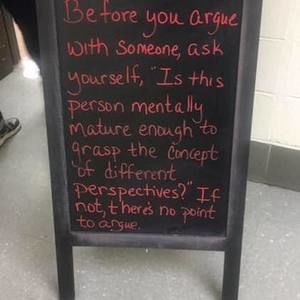 Before you argue
with someone, ask
yourself, "Is this
person mentally
mature enough to
grasp the concept
of different
perspectives?" If
not, there's no point
to argue.